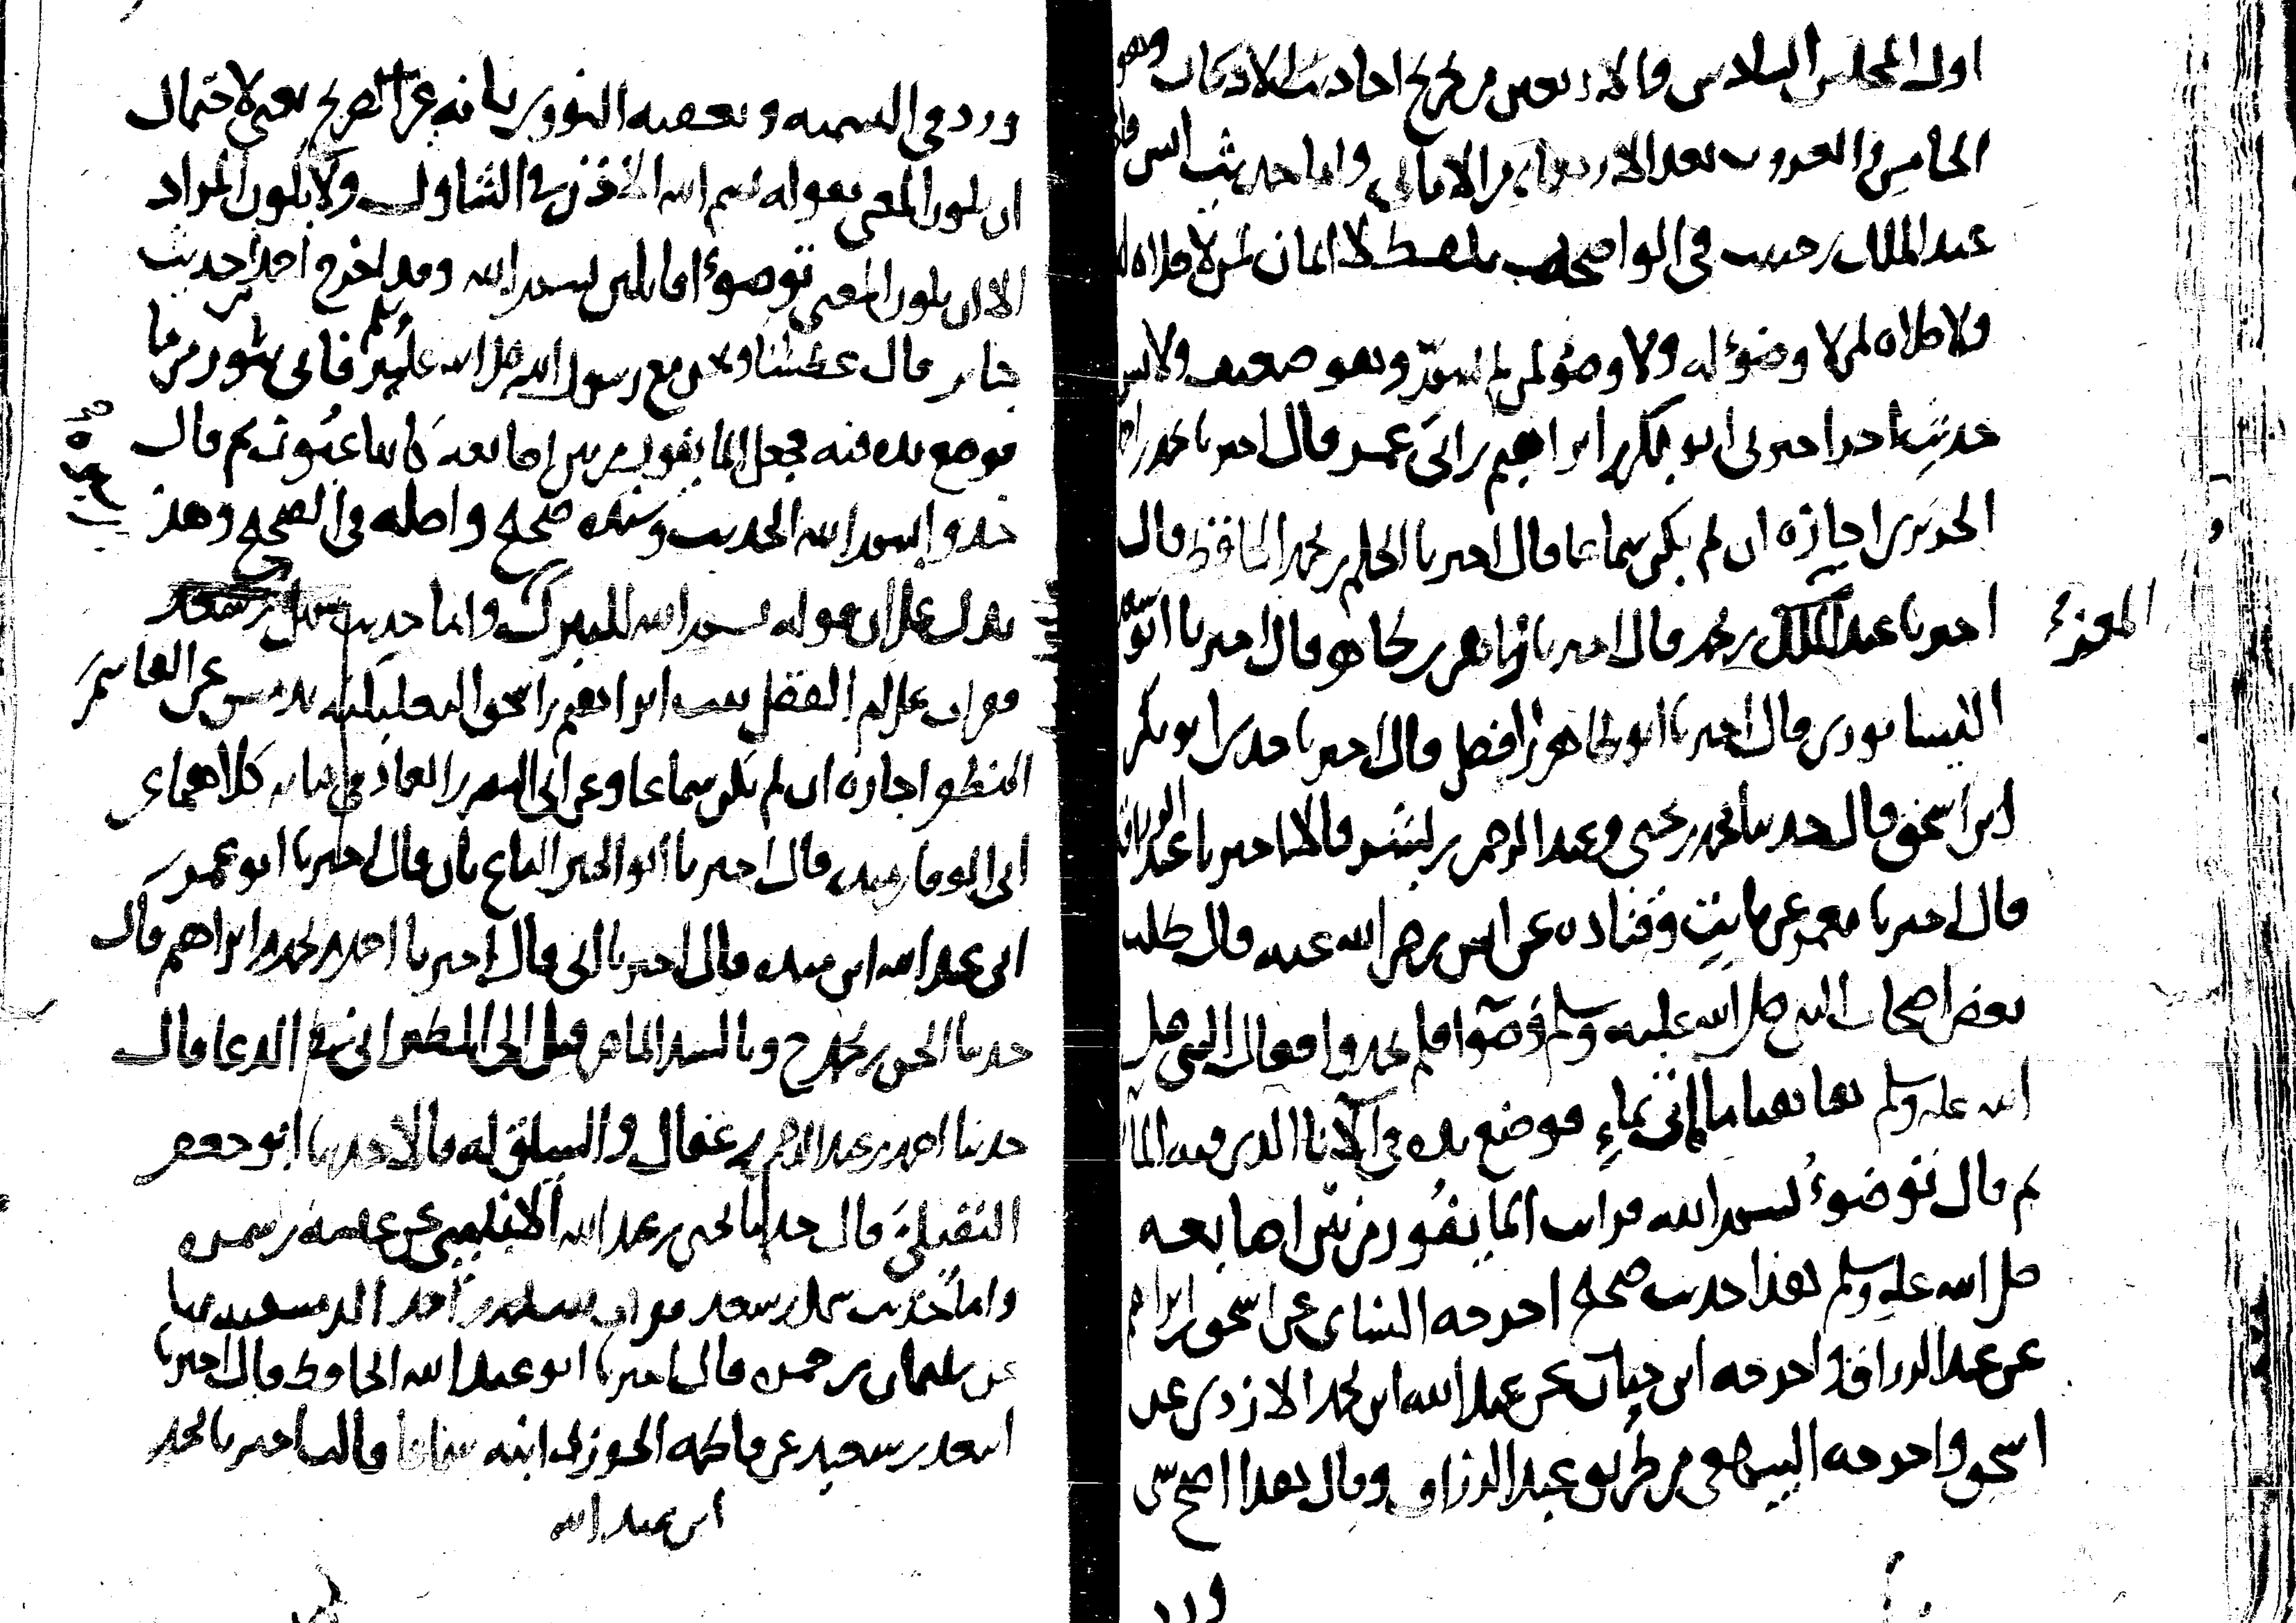 اول المجلس السادس والاربعين من تخريج احاديث الاذكار وهو
الخامس والعشرون بعد الاربعمائة من الامالي واما حديث انس
عبد الملك بن حبيب في الواضحة بلفظ لا ايمان لمن لا صلاة له
ولا صلاة لمن لا وضوء له ولا وضوء لمن لم يسم الله وهو ضعيف ولانس
حديث اخر اخبرني ابو بكر بن ابراهيم بن ابي عمر قال اخبرنا محمد بن
اجازة ان لم يكن سماعا قال اخبرنا الحافظ قال
اخبرنا عبد بن محمد قال اخبرنا زاهر بن طاهر قال اخبرنا ابو سعد
المعز
النيسابوري قال اخبرنا ابو طاهر بن الفضل قال اخبرنا جدي ابو بكر
ابن اسحق قال حدثنا محمد بن يحيى وعبد الرحمن بن بشر قالا اخبرنا عبد الرزاق
قال اخبرنا معمر عن ثابت وقتادة عن انس رضي الله عنه قال طلب
بعض اصحاب النبي صلى الله عليه وسلم وضوءا فلم يجدوا فقال النبي صلى
الله عليه وسلم هاهنا ماء فاتي بماء فوضع يده في الاناء الذي فيه الماء
ثم قال توضوء بسم الله فرايت الماء يفور من بين اصابعه
صلى الله عليه وسلم هذا حديث صحيح اخرجه النسائ عن اسحق بن ابراهيم
عن عبد الرزاق واخرجه ابن حبان عن عبد الله ابن محمد الازدي عن
اسحق واخرجه البيهقي من طريق عبد الرزاق وقال هذا اصح شى
ورد
ورد في التسمية وتعقبه النووي بانه غير الصريح يعني لاحتمال
ان يكون المعنى بقوله بسم الله الاذن في التناول ولا يكون المراد
الا ان يكون المعنى توضوء قائلين بسم الله وقد اخرج احمد حديث
جابر قال عطشنا ونحن مع رسول الله صلى الله عليه وسلم فاتي بتور من ما
فوضع يده فيه فجعل الما يفور من بين اصابعه كانها عيون ثم قال
خذوا بسم الله الحديث وسنده صحيح واصله في الصحيح وهذا
يدل على ان قوله بسم الله للتبرك واما حديث سهل بن سعد
فقرات على ام الفضل بنت ابراهيم بن اسحق البعلبكية بدمشق عن القاسم بن
المظفر اجازة ان لم يكن سماعا وعن ابي النصر بن العماد في كتابه كلاهما عن
ابي الوفا بن منده قال اخبرنا ابو الخير الباغبان قال اخبرنا ابو عمرو بن
ابي عبد الله ابن منده قال اخبرنا ابي قال اخبرنا احمد بن محمد بن ابراهيم قال
حدثنا الحسن بن محمد ح وبالسند الماضي قبل الى الطبراني في الدعا قال
حدثنا احمد بن عبد الرحمن بن عقال والسياق له قالا حدثنا ابو جعفر
النفيلي قال حدثنا يحيى بن عبد الله عن
واما حديث سهل بن سعد
عن سليمان بن حمزه قال اخبرنا ابو عبد الله الحافظ قال اخبرنا
اسعد بن سعيد عن فاطمه الجوزدانيه سماعا قالت اخبرنا محمد
ابن عبد الله